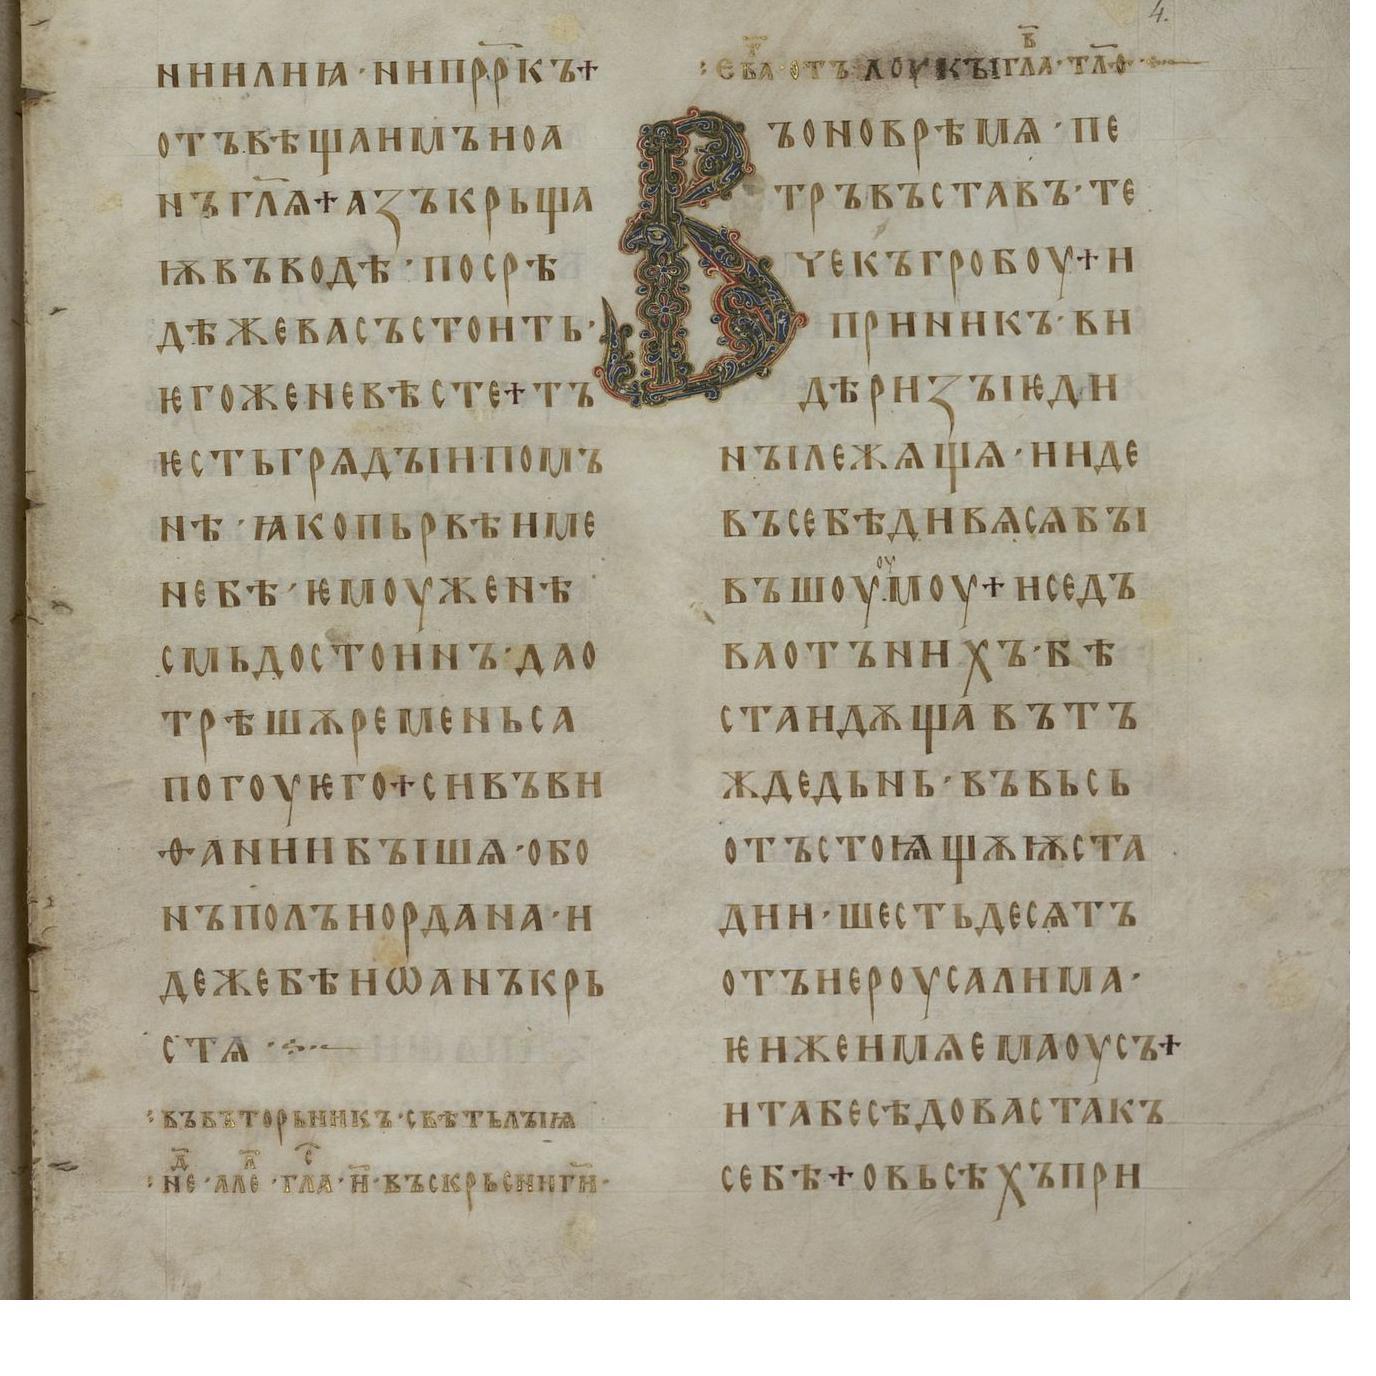 нилиꙗ · нипр҃ркъ+
отъвѣщанмъноа
нъгл҃ѧ+азъкрьща
ѭвъводѣ · посрѣ
дѣжевасъстоить ·
ѥгоженевѣсте+тъ
ѥстьгрѧдꙑипомъ
нѣ · ꙗкопьрвѣиме
небѣ · ѥмоуженѣ
смьдостоинъ · дао
трѣшѫременьса
погоуѥго+сивъви
ѳаниибꙑшѧ · обо
нъполъиордана · и
дежебѣиѡанъкрь
стѧ ·
въвъторьникъ · свѣтьлꙑꙗ
не · але · гла · и҃ · въскрьсниги ·
4.
еѵа · отъ лоукꙑ гла · тл҃о ·
Въоноврѣмѧ · пе
тръвъставъ · те
чекъгробоу+и
приникъ · ви
дѣризꙑѥди
нꙑлежѧщѧ · ииде
въсебѣдивѧсѧбꙑ
въшоуоумоу+иседъ
ваотънихъ · бѣ
стаидѫщавътъ
ждедьнь · въвьсь
отъстоꙗщѫѭста
дии · шестьдесѧтъ
отъиероусалима ·
ѥижеимѧемаоусъ+
итабесѣдовастакъ
себѣ+овьсѣхъпри